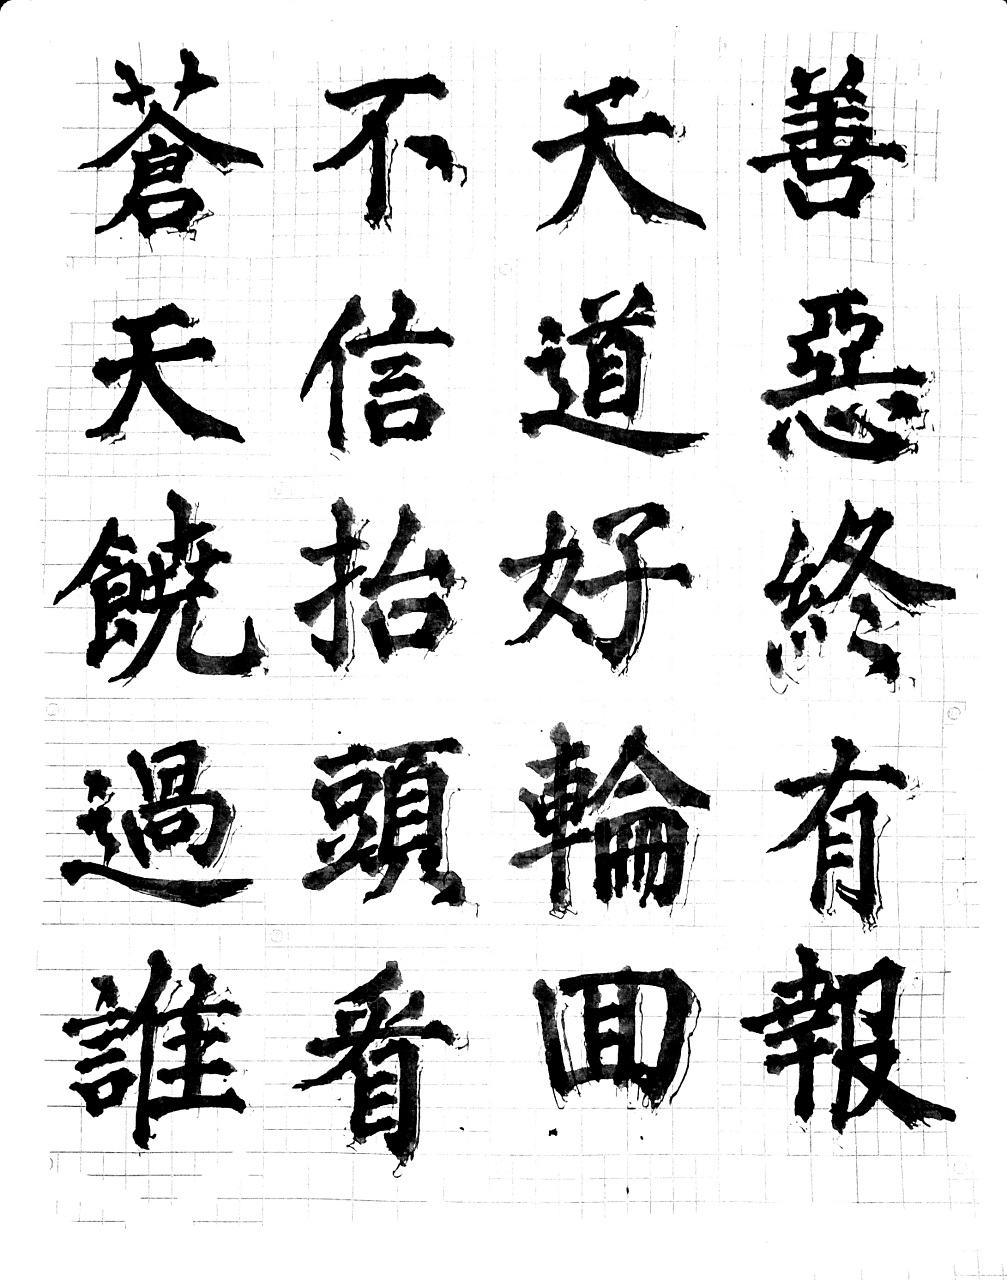 善惡終有報
天道好輪回
不信抬頭看
蒼天饒過誰